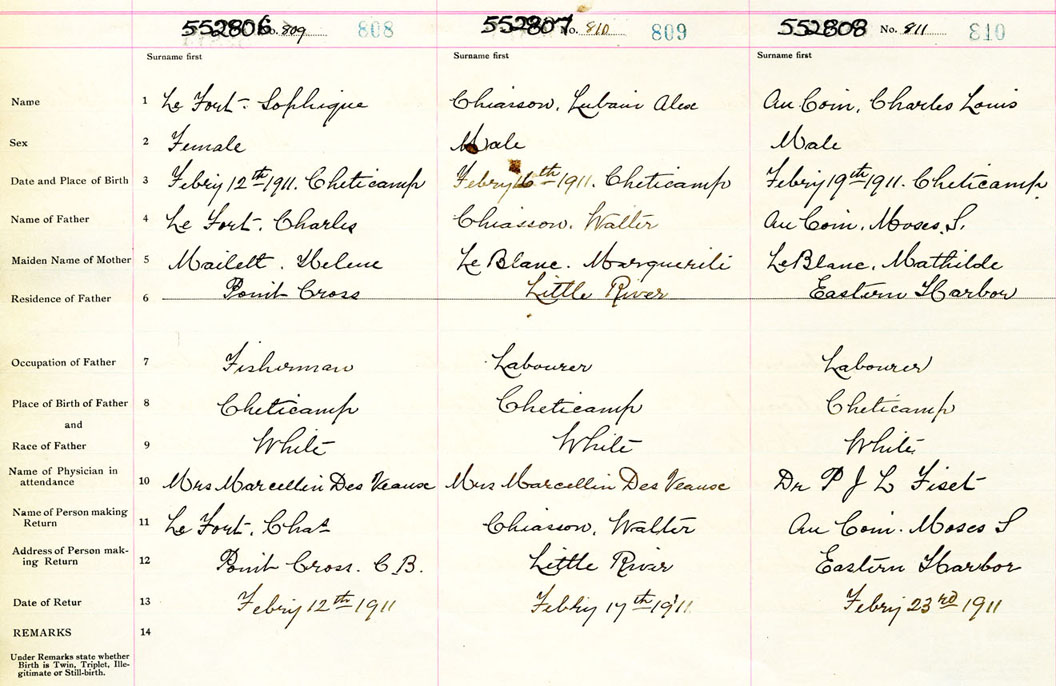 552806 No. 809 808 552807 No. 810 809 552808 No. 811 810
Surname first Surname first Surname first
Name 1 Le Fort. Sophique Chiasson, Lubain Alex Au Coin, Charles Louis
Sex 2 Female Male Male
Date and Place of Birth 3 Febry 12th 1911. Cheticamp Febry 16th 1911. Cheticamp Febry 19th 1911. Cheticamp
Name of Father 4 Le Fort. Charles Chiasson. Walter Au Coin. Moses. S.
Maiden Name of Mother 5 Mailett. Helene Le Blanc. Marguerili LeBlanc, Mathilde
Residence of Father 6 Point Cross Little River Eastern Harbor
Occupation of Father 7 Fisherman Labourer Labourer
Place of Birth of Father 8 Cheticamp Cheticamp Cheticamp
and
Race of Father 9 White White White
Name of Physician in
attendance 10 Mrs Marcellin Des Veause Mrs Marcellin Des Veause Dr P J L Fiset
Name of Person making
Return 11 Le Fort, Chas Chiasson, Walter Au Coin. Moses S
Address of Person mak-
ing Return 12 Point Cross. C.B. Little River Eastern Harbor
Date of Retur 13 Febry 12th 1911 Febry 17th 1911 Febry 23rd 1911
REMARKS 14
Under Remarks state whether
Birth is Twin, Triplet, Ille-
gitimate or Still-birth.